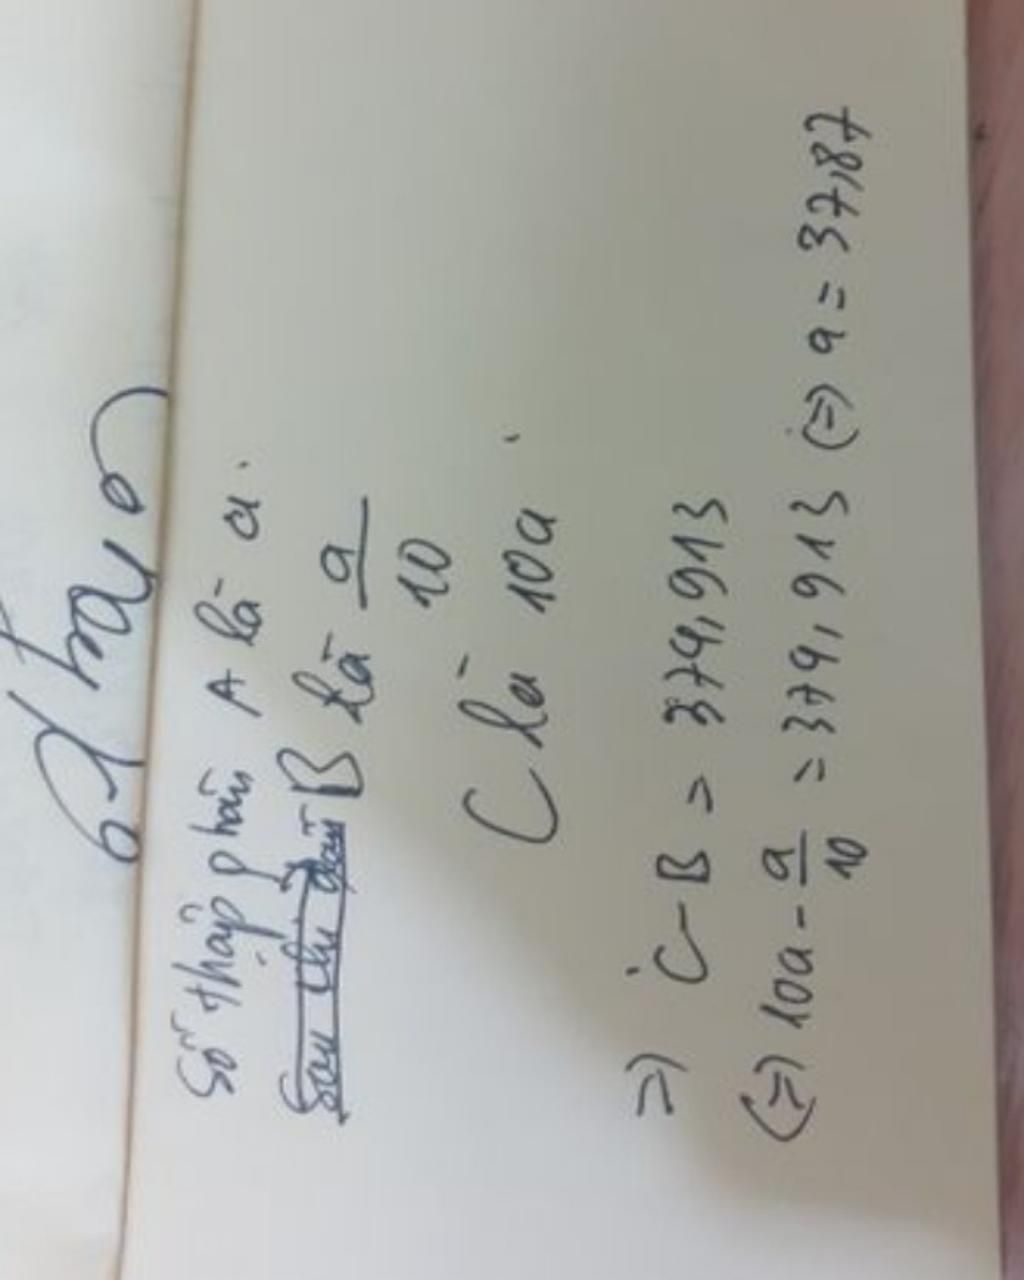 Số thập phân A là a.
B là a/10
C là 10a
=> C - B = 374,913
(=) 10a - a/10 = 374,913 (=) a = 37,87